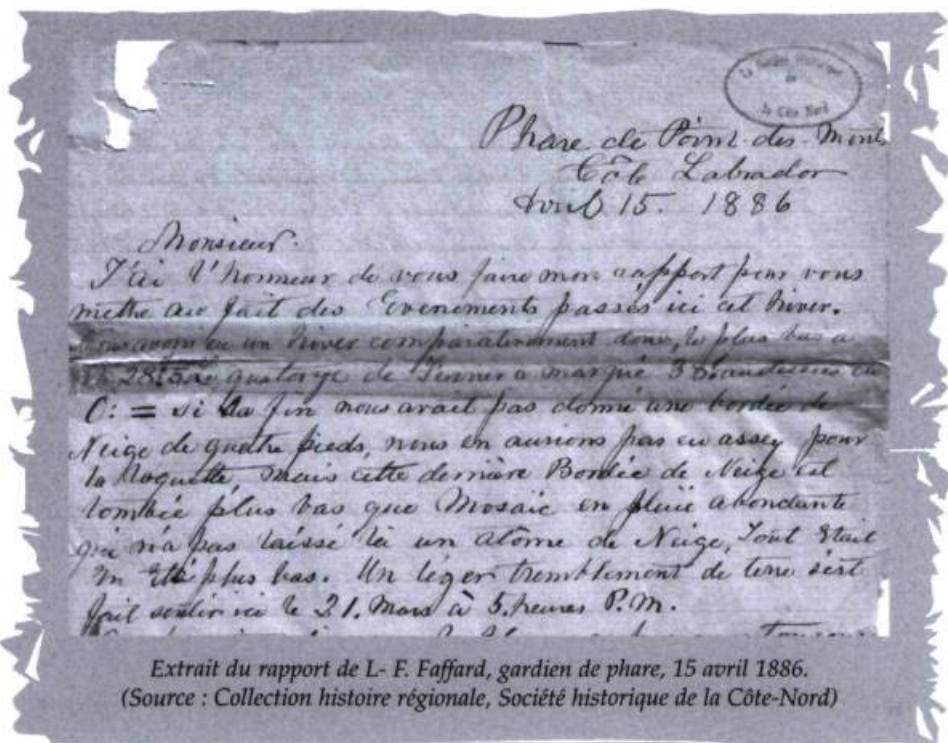 La Société Historique
de
la Côte Nord
Phare de Point-des-Monts
Côte Labrador
Avril 15. 1886
Monsieur.
J'ai l'honneur de vous faire mon rapport pour vous
mettre au fait des Evenements passés ici cet hiver.
Nous avons eu un hiver comparativement doux, le plus bas a
28.5 le quatorze de Janvier a marqué
0: = si la fin nous avait pas donné une bordée de
Neige de quatre pieds, nous en aurions pas eu assez pour
la Raquette, mais cette dernière Bordée de Neige est
tombée plus bas que Mosaïc en pluie abondante
qui n'a pas laissé là un atôme de Neige, Tout Etait
en Eté plus bas. Un léger tremblement de terre s'est
fait sentir ici le 21. Mars à 5. heures P.M.
Extrait du rapport de L- F. Faffard, gardien de phare, 15 avril 1886.
(Source : Collection histoire régionale, Société historique de la Côte-Nord)